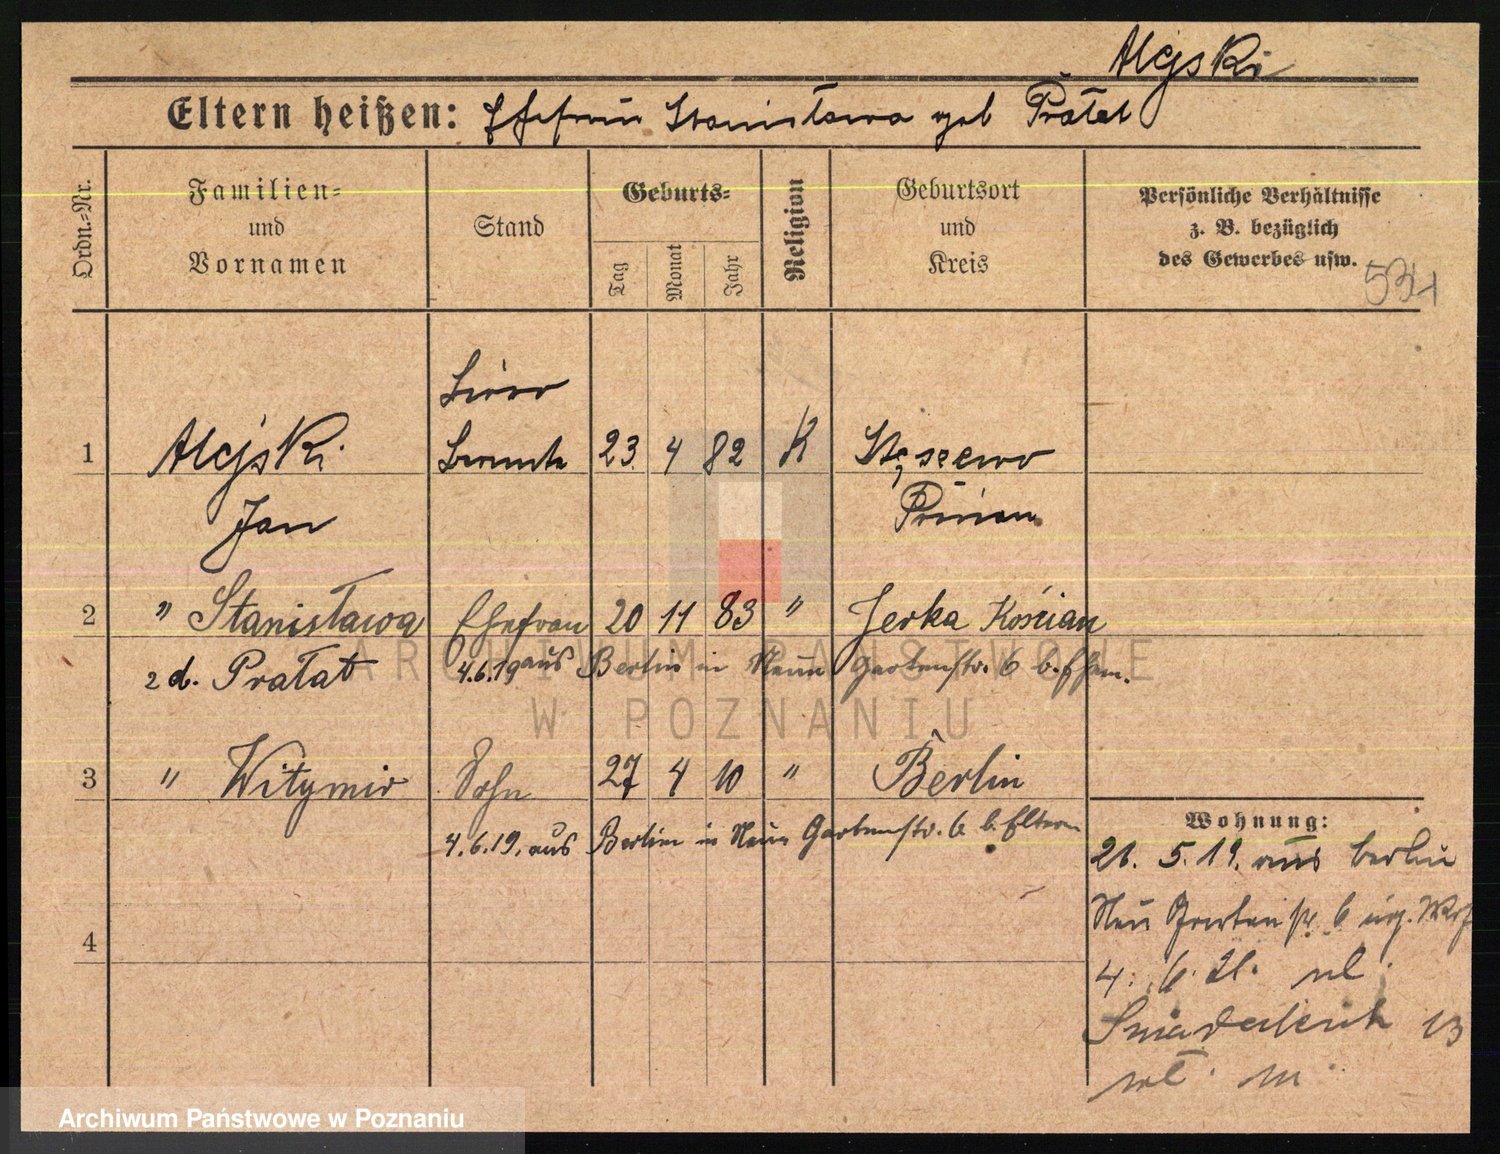 Alejski
Eltern heißen: Ehefrau Stanisława geb Prałat
Ordn.-Nr.
Familien- und Vornamen
Stand
Geburts-
Tag
Monat
Jahr
Religion
Geburtsort und Kreis
Persönliche Verhältnisse
z. B. bezüglich
des Gewerbes usw.
534
Büro
1 Alejski Beamte 23 4 82 K Stęszewo
Jan
2 " Stanisława Ehefrau 20 11 83 " Jerka Kościan
2 d. Prałat 4.6.19 aus Berlin in Neue Gartenstr. 6 b. Ehem.
3 " Witymir Sohn 27 4 10 " Berlin
4.6.19. aus Berlin in Neue Gartenstr. 6 b. Eltern
Wohnung:
21. 5. 19. aus Berlin
Neue Gartenstr. 6
4
4. 6. 21. ul.
Śniadeckich 13
ARCHIWUM PAŃSTWOWE
W POZNANIU
Archiwum Państwowe w Poznaniu